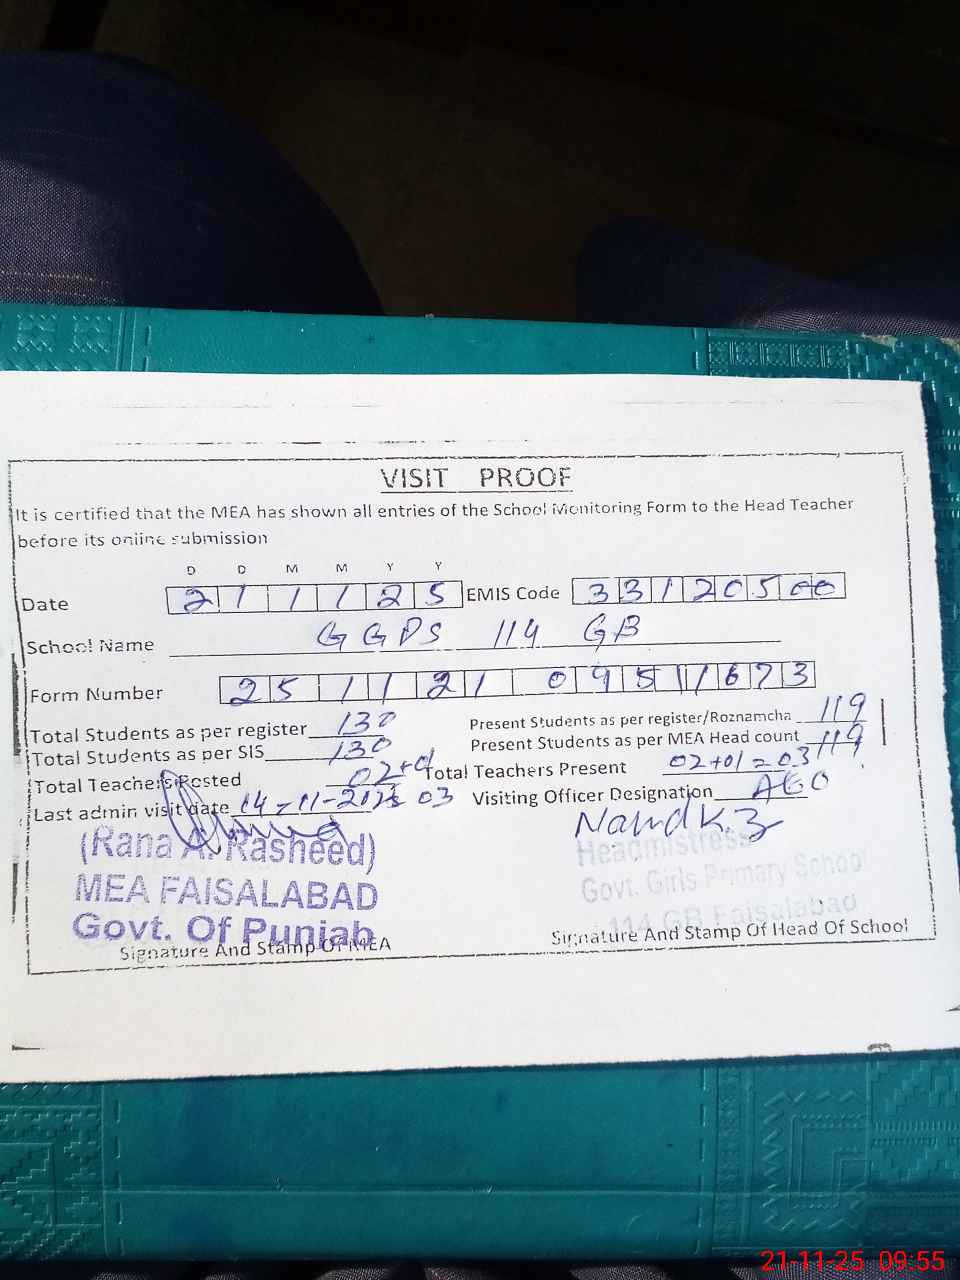 VISIT PROOF
It is certified that the MEA has shown all entries of the School Monitoring Form to the Head Teacher
before its online submission
D D M M Y Y
Date 2 1 1 1 2 5 EMIS Code 3 3 1 2 0 5 0 0
School Name GGPS 114 GB
Form Number 2 5 1 1 2 1 0 9 5 1 1 6 7 3
Total Students as per register 130 Present Students as per register/Roznamcha 119
Total Students as per SIS 130 Present Students as per MEA Head count 119
Total Teachers Posted 02+01 Total Teachers Present 02+01=03
Last admin visit date 14-11-2025 03 Visiting Officer Designation AEO
(Rana A. Rasheed) Headmistress
MEA FAISALABAD Govt. Girls Primary School
Govt. Of Punjab 114 GB Faisalabad
Signature And Stamp Of MEA Signature And Stamp Of Head Of School
21-11-25 09:55